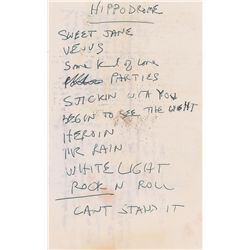 HIPPODROME
SWEET JANE
VENUS
Some kind of Love
PARTIES
STICKIN WITH YOU
BEGIN TO SEE THE LIGHT
HEROIN
MR RAIN
WHITE LIGHT
ROCK N ROLL
CANT STAND IT